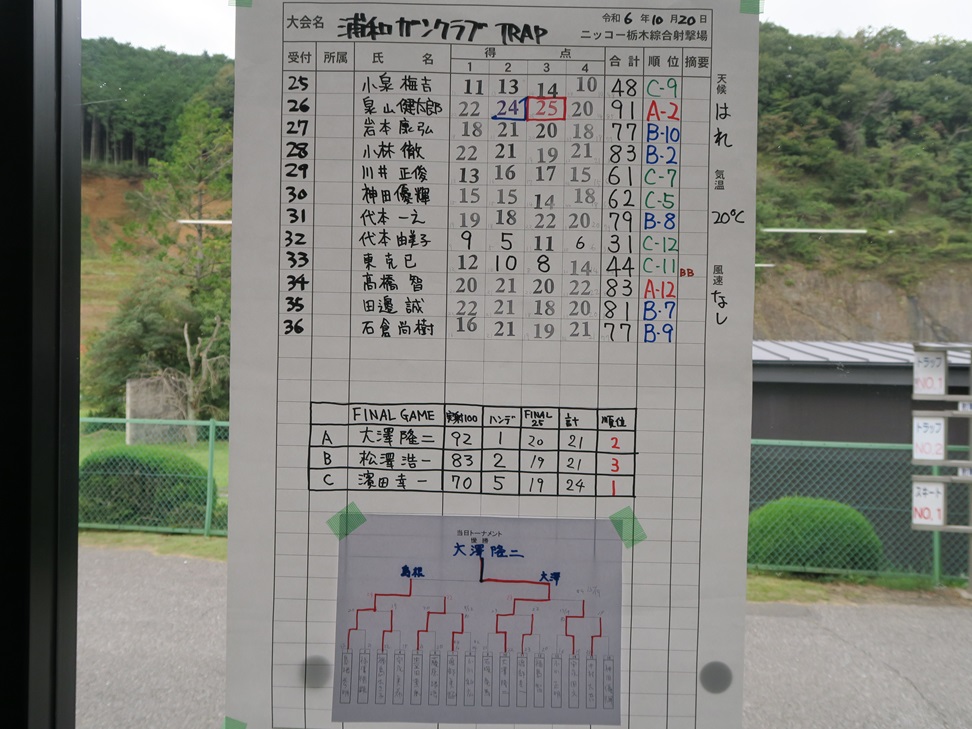 大会名 浦和ガンクラブ TRAP 令和6年10月20日
ニッコー栃木綜合射撃場
受付 所属 氏名 得点 合計 順位 摘要
1 2 3 4
25 小泉 梅吉 11 13 14 10 48 C-9
26 泉山 健太郎 22 24 25 20 91 A-2
27 岩本 康弘 18 21 20 18 77 B-10
28 小林 徹 22 21 19 21 83 B-2
29 川井 正俊 13 16 17 15 61 C-7
30 神田 優輝 15 15 14 18 62 C-5
31 代本 一之 19 18 22 20 79 B-8
32 代本 由美子 9 5 11 6 31 C-12
33 東 克巳 12 10 8 14 44 C-11 BB
34 高橋 智 20 21 20 22 83 A-12
35 田邉 誠 22 21 18 20 81 B-7
36 石倉 尚樹 16 21 19 21 77 B-9
天候 はれ
気温 20℃
風速 なし
FINAL GAME 実射100 ハンデ FINAL 25 計 順位
A 大澤 隆二 92 1 20 21 2
B 松澤 浩一 83 2 19 21 3
C 濱田 幸一 70 5 19 24 1
当日トーナメント
優勝
大澤 隆二
島根 大澤
トラップ
NO.1
トラップ
NO.2
スキート
NO.1